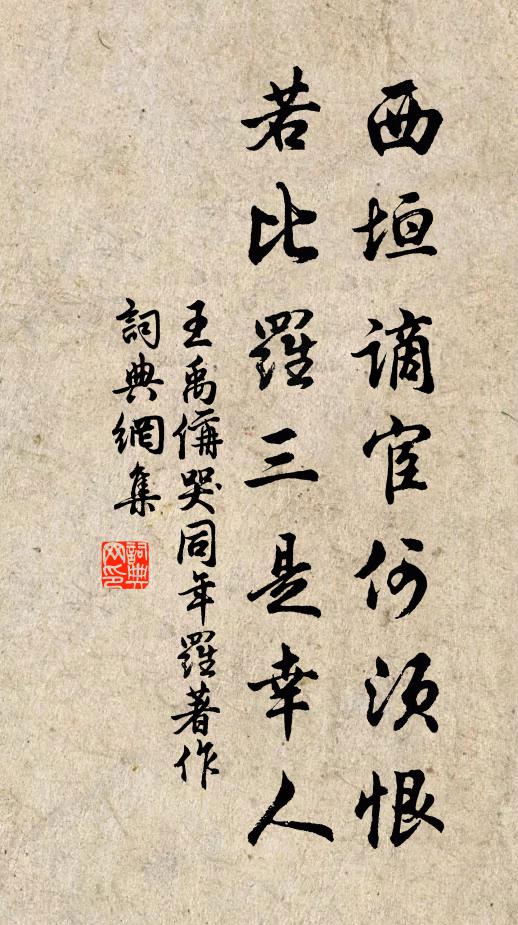 西垣謫宦何須恨
若比羅三是幸人
王禹偁哭同年羅著作
詞典網集
詞典
网印